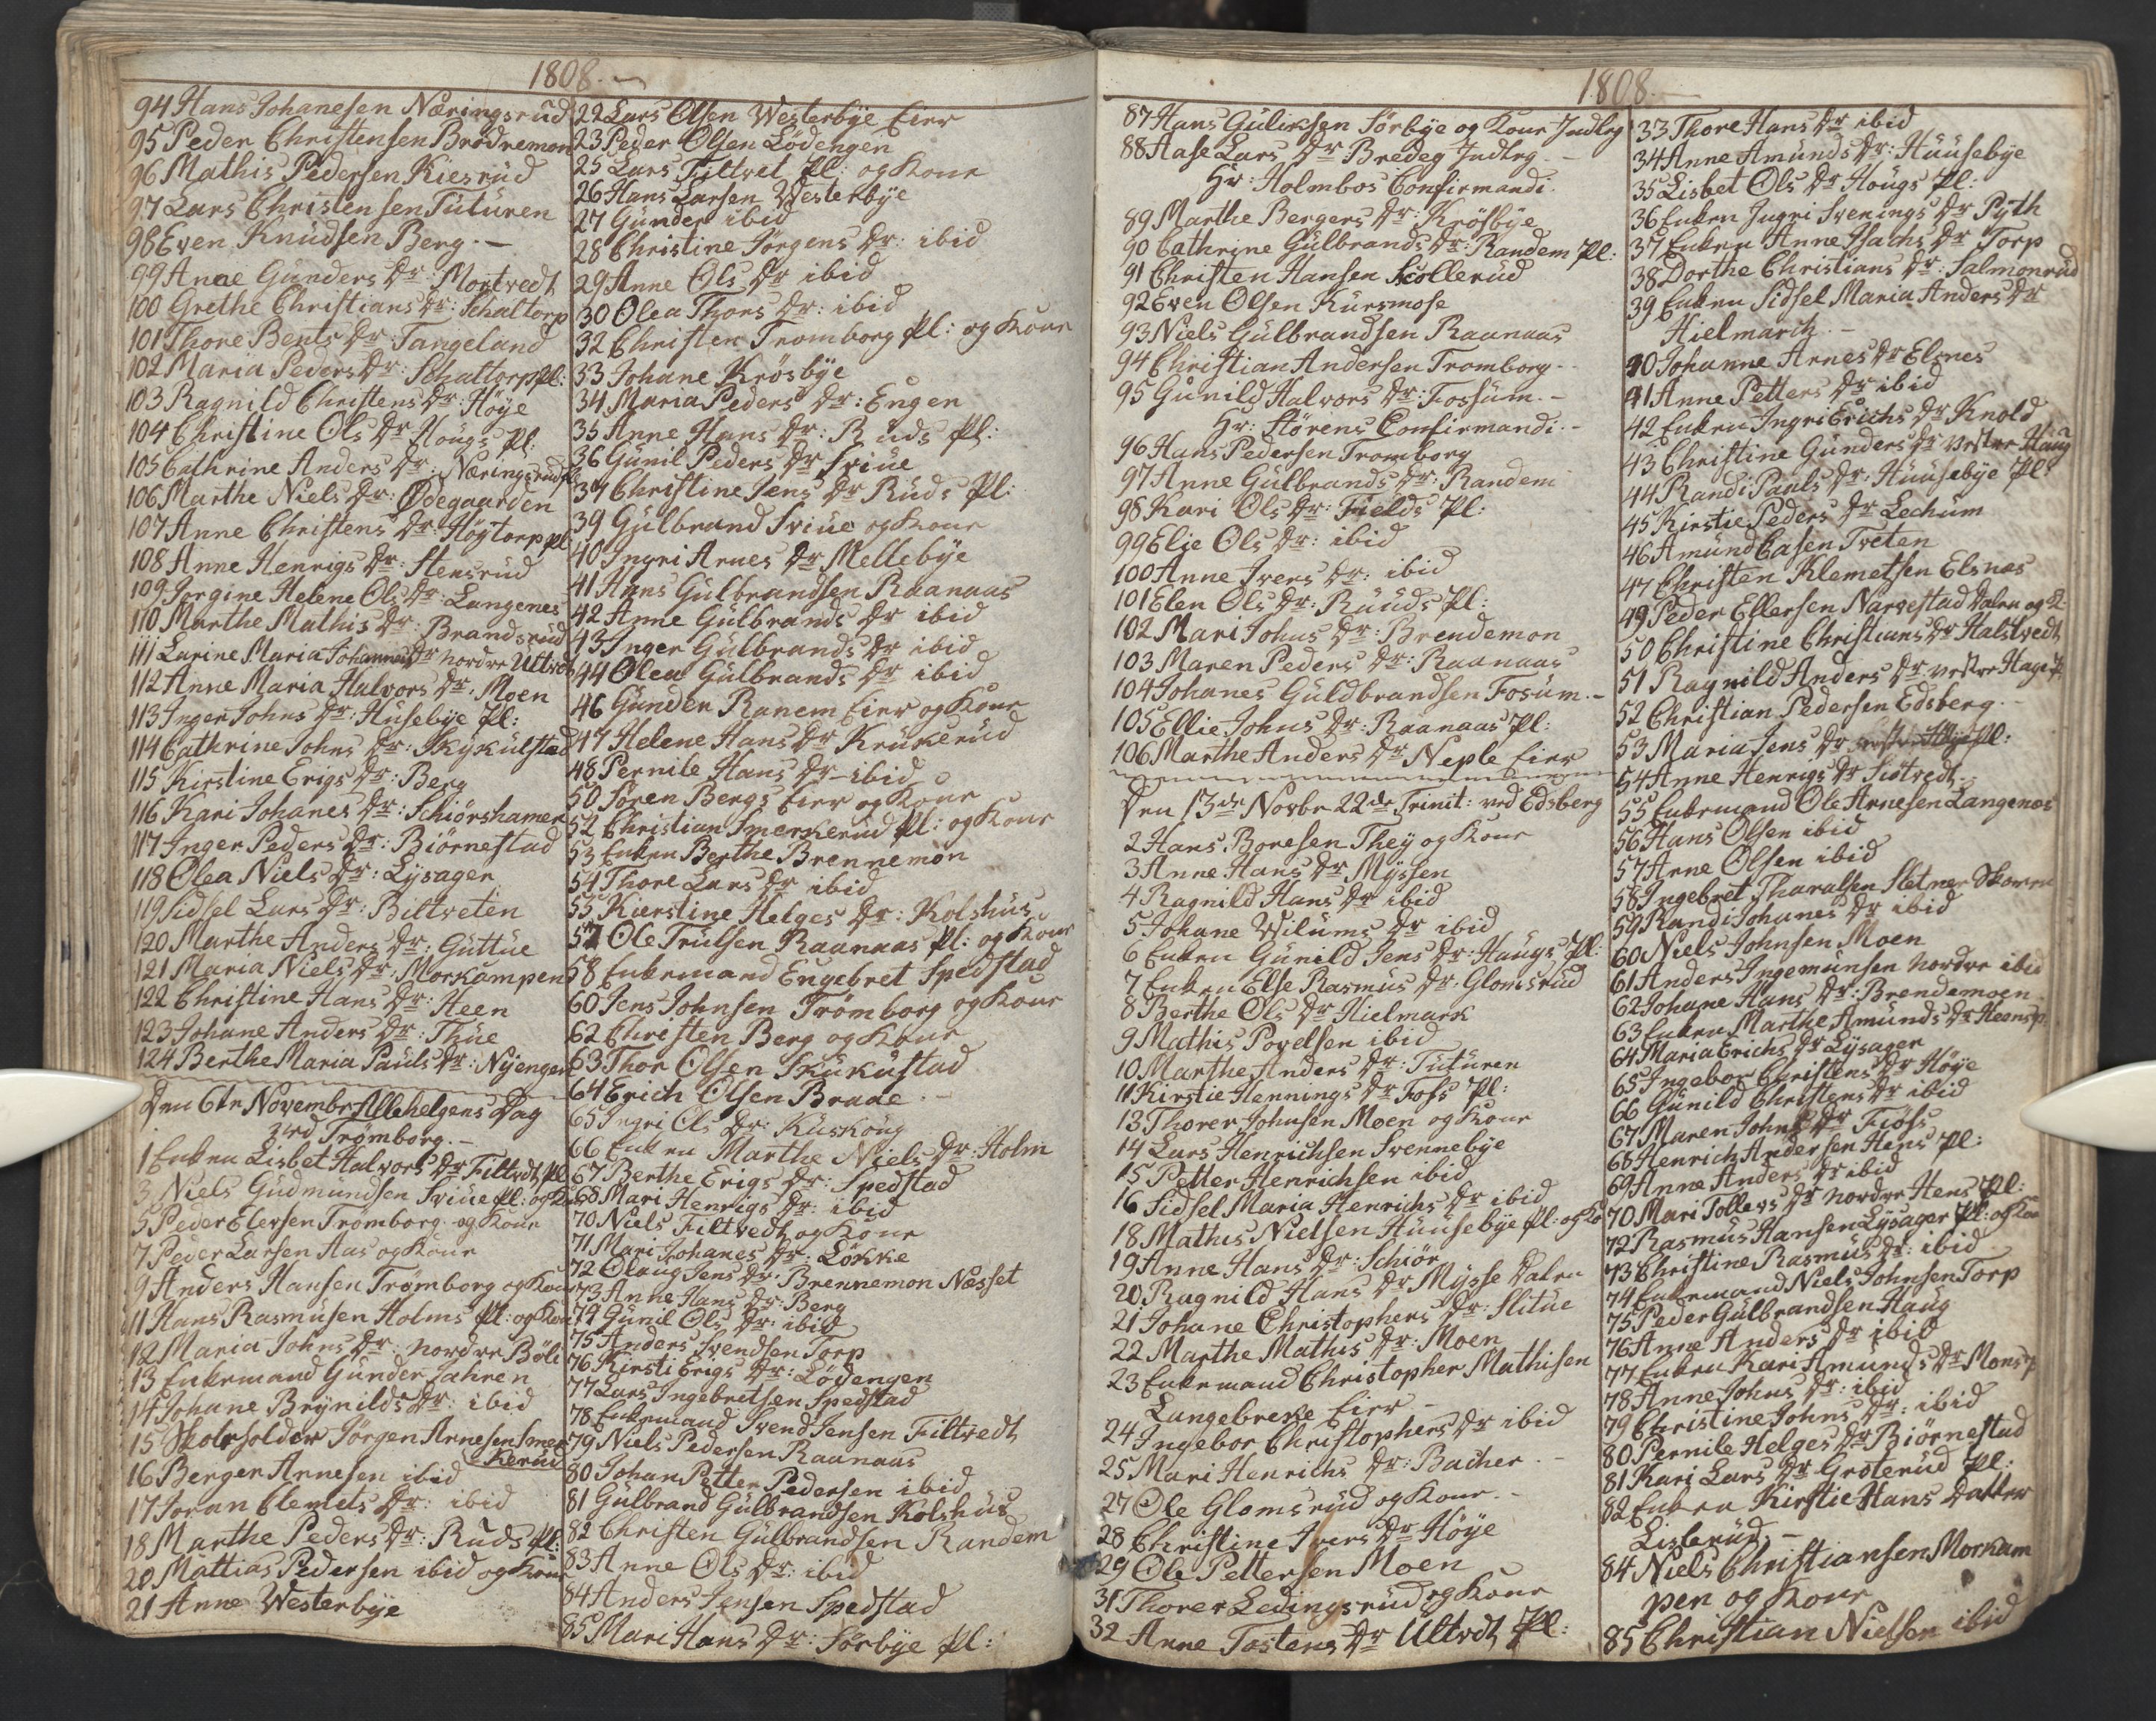 1808.
94 Hans Johanesen Næringsrud
95 Peder Christensen Brødremon
96 Mathis Pedersen Kiesrud
97 Lars Christensen Tuturen
98 Even Knudsen Berg. -
99 Anne Gunders Dr: Mortvedt
100 Grethe Christians Dr: Schaltorp
101 Thore Bents Dr: Tangeland
102 Maria Peders Dr: Schaltorp pl:
103 Ragnild Christens Dr: Høye
104 Christine Ols Dr Hougs Pl:
105 Cathrine Anders Dr: Næringsrud
106 Marthe Niels Dr: Ødegaarden
107 Anne Christens Dr: Høytorp pl
108 Anne Henrigs Dr: Stensrud
109 Jorgine Helene Ols Dr: Langenes
110 Marthe Mathis Dr: Brandsrud
111 Larine Maria Johannes Dr nordre Ultvedt
112 Anne Maria Halvors Dr: Moen
113 Inger Johns Dr: Husebye Pl:
114 Cathrine Johns Dr: Skÿkulstad
115 Kirstine Erigs Dr: Berg
116 Kari Johanes Dr: Schiørshamer
117 Inger Peders Dr: Biørnestad
118 Olea Niels Dr: Lÿsager
119 Sidsel Lars Dr: Biltveten
120 Marthe Anders Dr: Guttue
121 Maria Niels Dr: Morkampen
122 Christine Hans Dr: Heen
123 Johane Anders Dr: Thue
124 Berthe Maria Pauls Dr: Nÿengen
Den 6te Novembr Allehelgens Dag
ved Trømborg. -
1 Enken Lisbet Halvors Dr Filtvedt Pl
3 Niels Gudmundsen Sriue Pl: og Kone
5 Peder Elersen Tromborg og Kone
7 Peder Larsen Aas og Kone
9 Anders Hansen Trømborg og Kone
11 Hans Rasmusen Holms Pl: og Kone
12 Maria Johns Dr: nordre Bøli
13 Enkemand Gunder Jahren
14 Johane Brÿnilds Dr: ibid
15 Skoleholder Jörgen Arnesen Smer
kerud
16 Berger Arnesen ibid
17 Joran Clemets Dr: ibid
18 Marthe Peders Dr: Ruds Pl:
20 Mattias Pedersen ibid og Kone
21 Anne Westerbÿe
22 Lars Olsen Westerbÿe Eier
23 Peder Olsen Lödengen
25 Lars Filtvet Pl: og Kone
26 Hans Larsen Westerbÿe
27 Gunder ibid
28 Christine Jørgens Dr: ibid
29 Anne Ols Dr ibid
30 Olea Thors Dr: ibid
32 Christen Tromborg Pl: og Kone
33 Johane Krösbÿe
34 Maria Peders Dr: Engen
35 Anne Hans Dr: Ruds Pl:
36 Gunil Peders Dr Sriue
37 Christine Jens Dr Ruds Pl:
39 Gulbrand Sriue og Kone
40 Ingri Arnes Dr Mellebÿe
41 Hans Gulbrandsen Raanaas
42 Anne Gulbrands Dr ibid
43 Inger Gulbrands Dr ibid
44 Olea Gulbrands Dr ibid
46 Gunder Ranem Eier og Kone
47 Helene Hans Dr Krukerud
48 Pernile Hans Dr ibid
50 Søren Bergs Eier og Kone
52 Christian Smerkerud Pl: og Kone
53 Enken Berthe Brennemon
54 Thore Lars Dr ibid
55 Kierstine Helges Dr: Kolshus
57 Ole Trulsen Raanaas Pl: og Kone
58 Enkemand Engebret Spedstad
60 Jens Johnsen Trömborg og Kone
62 Christen Berg og Kone
63 Thor Olsen Skukustad
64 Erich Olsen Braae. -
65 Ingri Ols Dr: Kuskoug
66 Enken Marthe Niels Dr: Holm
67 Berthe Erigs Dr: Spedstad
68 Mari Henrigs Dr: ibid
70 Niels Filtvedt og Kone
71 Mari Johanes Dr: Løkke
72 Olaug Jens Dr: Brennemon Næsset
73 Anne Hans Dr: Berg
74 Gunil Ols Dr: ibid
75 Anders Svendsen Torp
76 Kirsti Erigs Dr: Lödengen
77 Lars Ingebretsen Spedstad
78 Enkemand Svend Jensen Filtvedt
79 Niels Pedersen Raanaas
80 Johan Petter Pedersen ibid
81 Gulbrand Gulbrandsen Kolshus
82 Christen Gulbrandsen Randem
83 Anne Ols Dr: ibid
84 Anders Jensen Spedstad
85 Mari Hans Dr: Sörbÿe Pl:
1808.
87 Hans Guliksen Sørbÿe og Kone Indlrg
88 Aase Lars Dr: Bredeg Indlrg. -
Hr: Holmbos Confirmandi.
89 Marthe Bergers Dr: Krösbÿe
90 Cathrine Gulbrands Dr: Randem Pl:
91 Christen Hansen Skollerud
92 Even Olsen Kursmose
93 Niels Gulbrandsen Raanaas
94 Christian Andersen Tromborg. -
95 Gunild Halvors Dr: Fossum. -
Hr: Störens Confirmandi. -
96 Hans Pedersen Tromborg
97 Anne Gulbrands Dr: Randem
98 Kari Ols Dr: Fields Pl:
99 Elie Ols Dr: ibid
100 Anne Ivers Dr: ibid
101 Elen Ols Dr: Ruuds Pl:
102 Mari Johns Dr: Brendemon
103 Maren Peders Dr: Raanaas
104 Johanes Guldbrandsen Fosum. -
105 Ellie Johns Dr: Raanaas Pl:
106 Marthe Anders Dr Neple Eier
Den 13de Novbr 22de Trinit: ved Edsberg
2 Hans Boresen Theÿ og Kone
3 Anne Hans Dr: Mÿssen
4 Ragnild Hans Dr ibid
5 Johane Wilums Dr ibid
6 Enken Gunild Jens Dr: Haugs Pl:
7 Enken Else Rasmus Dr: Glomsrud
8 Berthe Ols Dr Hielmark
9 Mathis Povelsen ibid
10 Marthe Anders Dr: Tuturen
11 Kirstie Hennings Dr Foss Pl:
13 Thorer Johnsen Moen og Kone
14 Lars Henrichsen Svennebÿe
15 Petter Henrichsen ibid
16 Sidsel Maria Henrichs Dr ibid
18 Mathis Nielsen Huusebÿe Pl: og Ko
19 Anne Hans Dr: Schiør
20 Ragnild Hans Dr Mÿsse Dalen
21 Johane Christophers Dr: Slitue
22 Marthe Mathis Dr: Moen
23 Enkemand Christopher Mathisen
Langebreke Eier -
24 Ingebor Christophers Dr ibid
25 Mari Henrichs Dr: Bacher. -
27 Ole Glomsrud og Kone. -
28 Christine Ivers Dr Höÿe
29 Ole Pettersen Moen
31 Thorer Ledingsrud og Kone
32 Anne Tostens Dr Ultvdt Pl:
33 Thore Hans Dr ibid
34 Anne Amunds Dr: Huusebÿe
35 Lisbet Ols Dr Hougs Pl:
36 Enken Ingri Svenings Dr Pÿth
37 Enken Anne Isachs Dr Torp
38 Dorthe Christians Dr: Salmonrud
39 Enken Sidsel Maria Anders Dr
Hielmark. -
40 Johanne Arnes Dr Elsnes
41 Anne Petters Dr ibid
42 Enken Ingri Erichs Dr Knold
43 Christine Gunders Dr vestre Haug
44 Randi Pauls Dr: Huusebÿe Pl:
45 Kirstie Peders Dr Lechum
46 Amund Casen Treten
47 Christen Klemetsen Elsnes
49 Peder Ellersen Narvestad Dalen og K
50 Christine Christians Dr Halstvedt
51 Ragnild Anders Dr vestre Hage
52 Christian Pedersen Edsberg. -
53 Maria Jens Dr Pl:
54 Anne Henrigs Dr Siøtvedt. -
55 Enkemand Ole Arnesen Langenæs
56 Hans Olsen ibid
57 Arne Olsen ibid
58 Ingebret Tharalsen Sletner Skoven
59 Randi Johanes Dr ibid
60 Niels Johnsen Moen
61 Anders Ingemunsen nordre ibid
62 Johane Hans Dr: Brendemoen
63 Enken Marthe Amunds Dr Heens p
64 Maria Erichs Dr Lÿsager
65 Ingebor Christens Dr Höÿe
66 Gunild Christens Dr ibid
67 Maren Johns Dr Fiöss
68 Henrich Andersen Hens Pl:
69 Anne Anders Dr ibid
70 Mari Tollevs Dr nordre Hens Pl:
72 Rasmus Hansen Lÿsager Pl: og Kone
73 Christine Rasmus Dr: ibid
74 Enkemand Niels Johnsen Torp
75 Peder Gulbrandsen Haug
76 Anne Anders Dr ibid
77 Enken Kari Amunds Dr Mons
78 Anne Johns Dr: ibid
79 Christine Johns Dr: ibid
80 Pernile Helges Dr Biörnestad
81 Kari Lars Dr Groterud Pl:
82 Enken Kirstie Hans Datter
Listerud. -
84 Niels Christiansen Morkam
pen og Kone
85 Christian Nielsen ibid